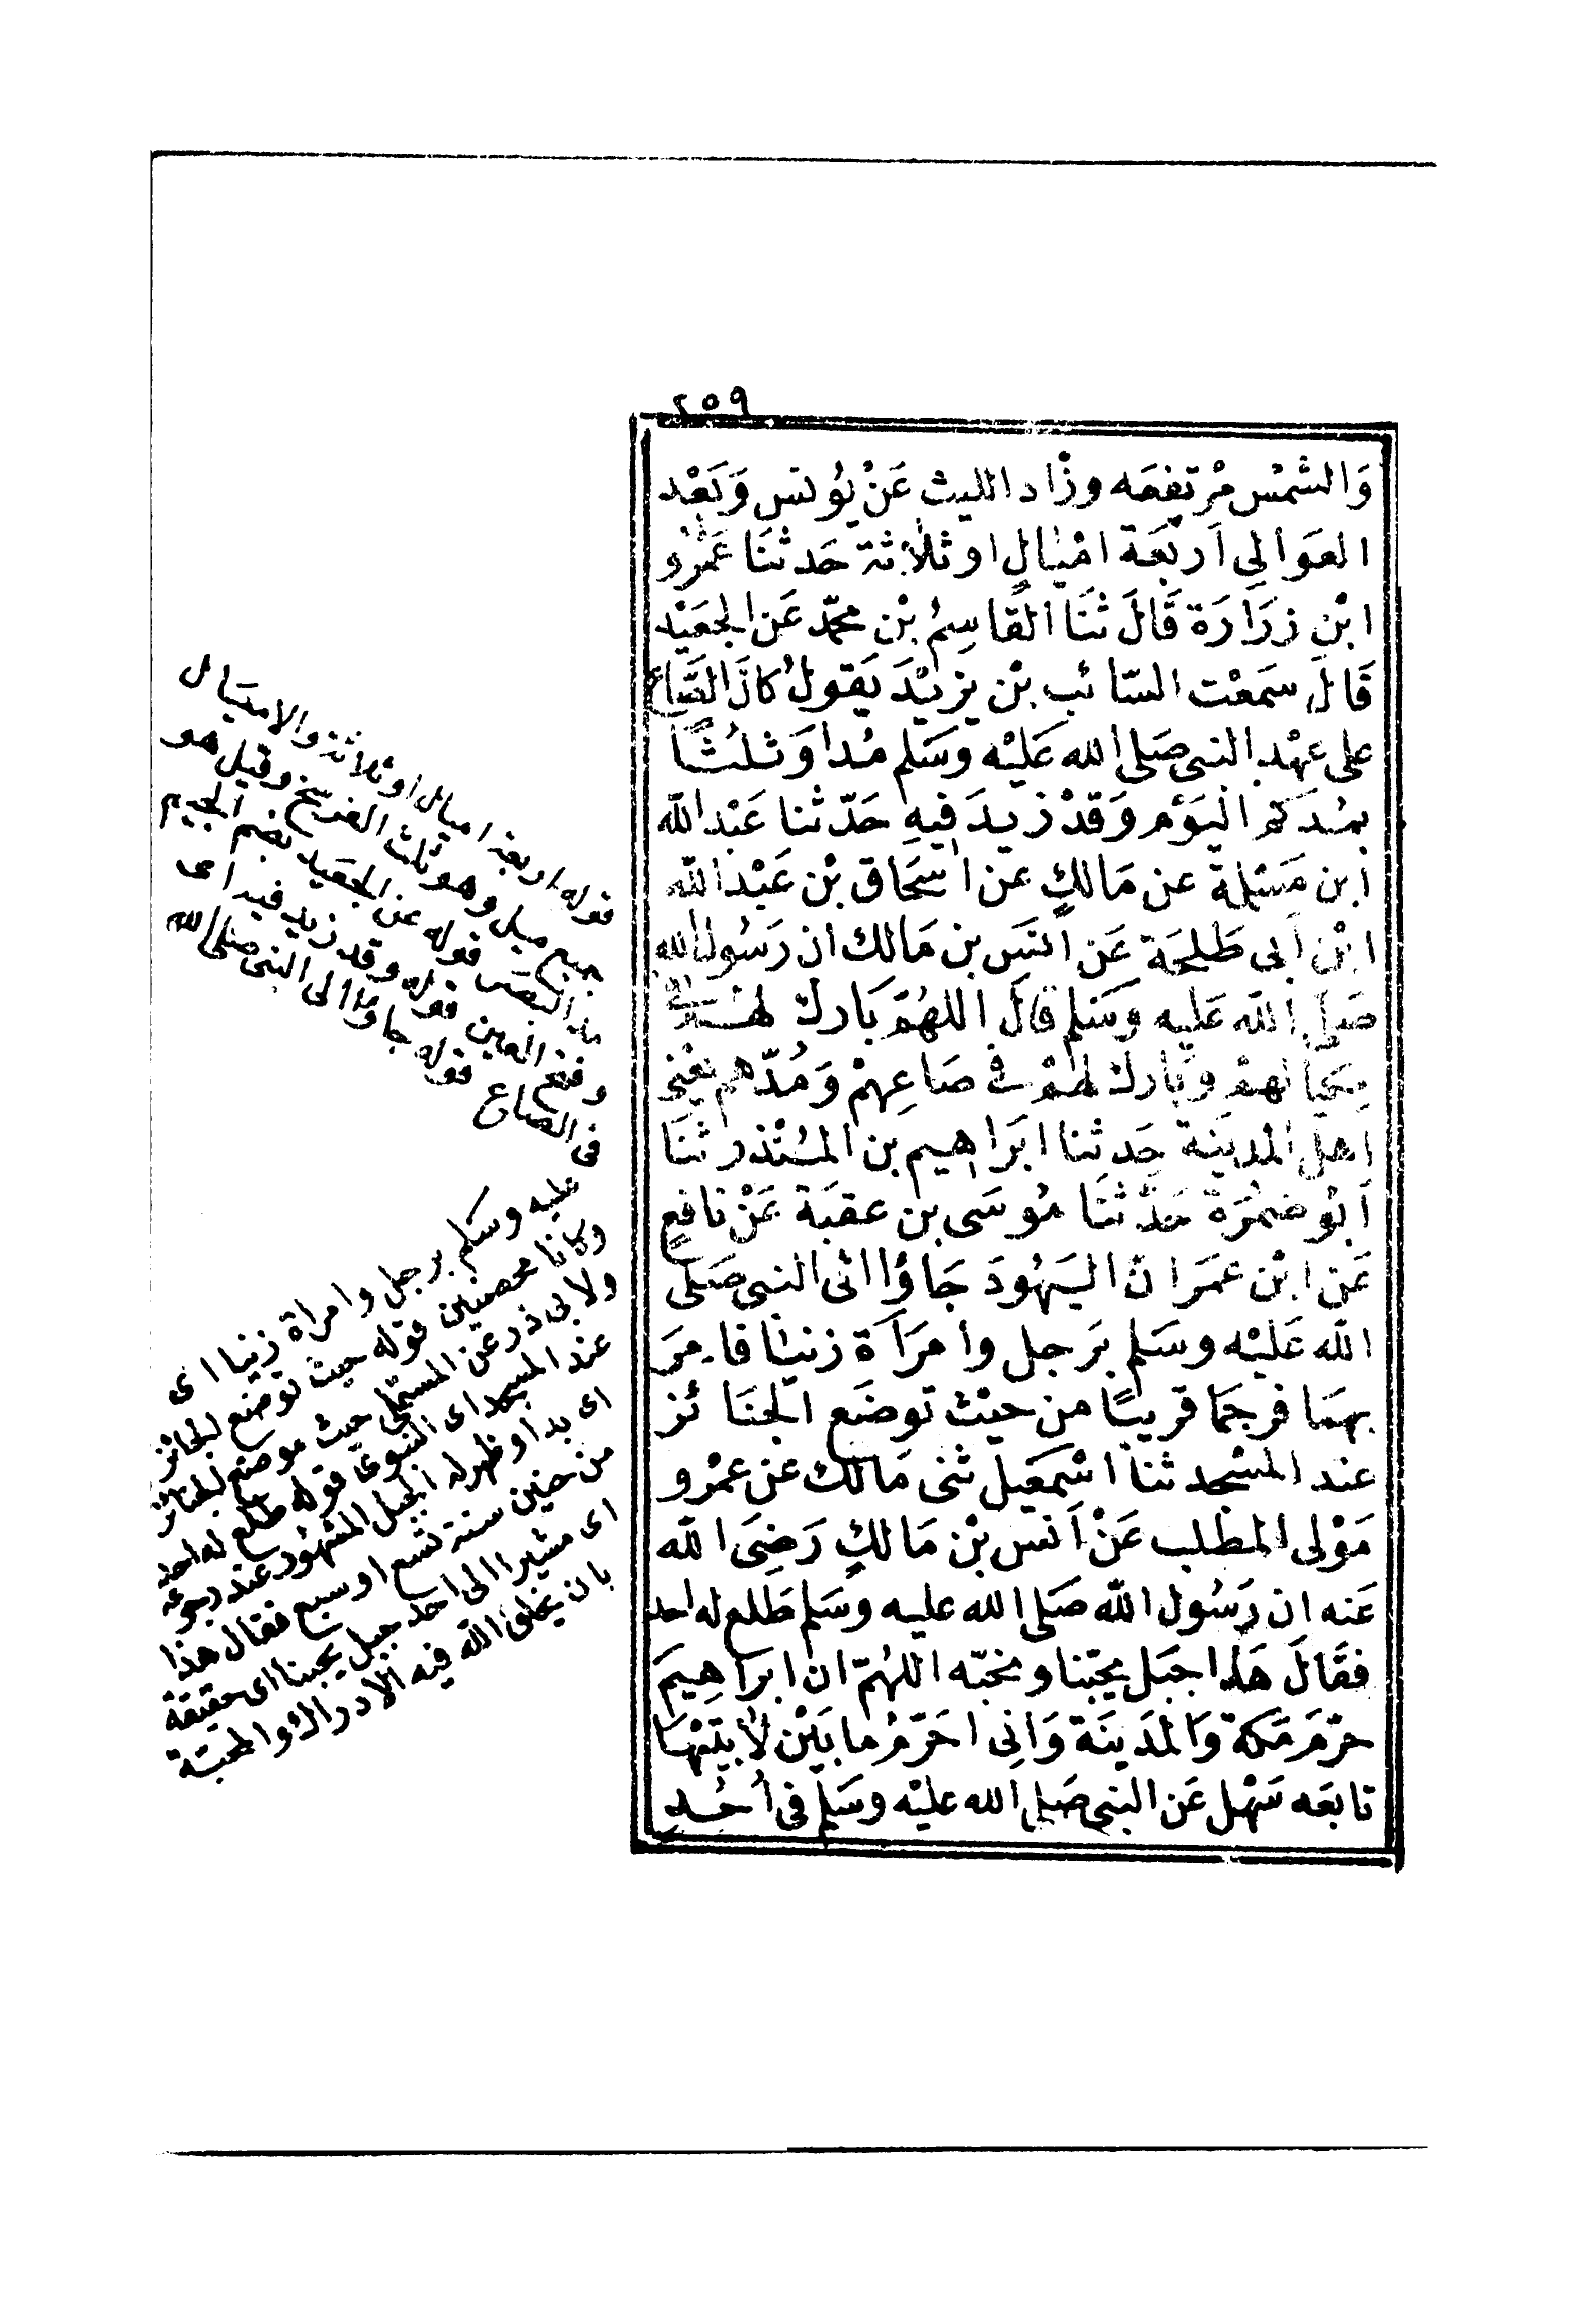 ٢٥٩
وَالشمْس مرْتفِعَه وزَاد الليث عَنْ يُونس وَبَعْد
العَوَالِي اَربَعَة امْيَالٍ او ثلاَثة حَدثنَا عَمْرُو
ابْن زرَارَة قَالَ ثنَا القَاسِمُ بْن محمّد عَن الجعَيْد
قَالَ سَمعْت السّائب بْن يزيْدَ يَقولُ كانَ الصَّاع
على عهْد النبى صَلى الله عَليْه وسَلم مُدا وَثلثًا
بمُدكم اليَوْم وَقدْ زيدَ فيهِ حَدّثنا عَبْد الله
ابن مَسْلمة عن مَالكٍ عن اسحَاق بْن عَبْد الله
ابْن اَبى طَلحَة عَن اَنسَ بن مَالك ان رَسُول الله
صَلى الله عَليه وَسَلم قالَ اللهُمّ بَارك لهُم فى
مِكيَالهمْ وبَارك لهُمْ فى صَاعِهمْ وَمُدّهم يَعْنى
اهلَ المدينَة حَدثنا ابَراهيم بن المُنْذر ثنَا
اَبُو ضمْرَة حَدّثنَا مُوسَى بن عقبَة عَنْ نافعٍ
عَن ابْن عمَر انّ اليَهُودَ جَاؤُا الى النبى صَلى
الله عَليْه وسَلم بَرجل وامْرَأَة زنيَا فامَر
بهمَا فرجمَا قريبًا من حيْث توضَع الجنَائز
عند المسْجد ثنا اسْمَعيل ثنى مَالك عَن عمْرو
مَوْلى المطلب عَنْ اَنس بْن مَالكٍ رَضِىَ الله
عَنه ان رَسُول الله صَلى الله عليه وسَلم طَلع له احد
فقَالَ هَذا جَبَل يحبّنا ونحبّه اللهُمّ ان ابرَاهِيمَ
حرّمَ مَكة وَالمدَينَة وَاِنى احَرّمُ ما بَيْن لاَبتَيْهَا
تابعَه سَهْل عَن النبى صَلى الله عليْه وسَلم فى اُحُدٍ
قوله اربعة اميال او ثلاثة والاميَال
جمع ميل وهو ثلث الفرسخ وقيل هو
قوله عن الجعَيد بضم الجيم
وفتح العين قوله وقد زيد فيه اى
فى الصاع قوله جاوا الى النبى صلى الله
عليه وسَلم برجل وامراة زنيا اى
وكانا محصنين قوله حيث توضع الجنائز
ولابى ذر عن المستملى حيث موضع الجنائز
عند المسجد اى النبوى قوله طلع له احد
اى بدا وظهر له الجبل المشهُور عند رجوعه
من حنين سنة تسع او سبع فقال هذا
اى مشيرا الى احد جبل يحبنا اى حقيقة
بان يخلق الله فيه الادراك والمحبّة